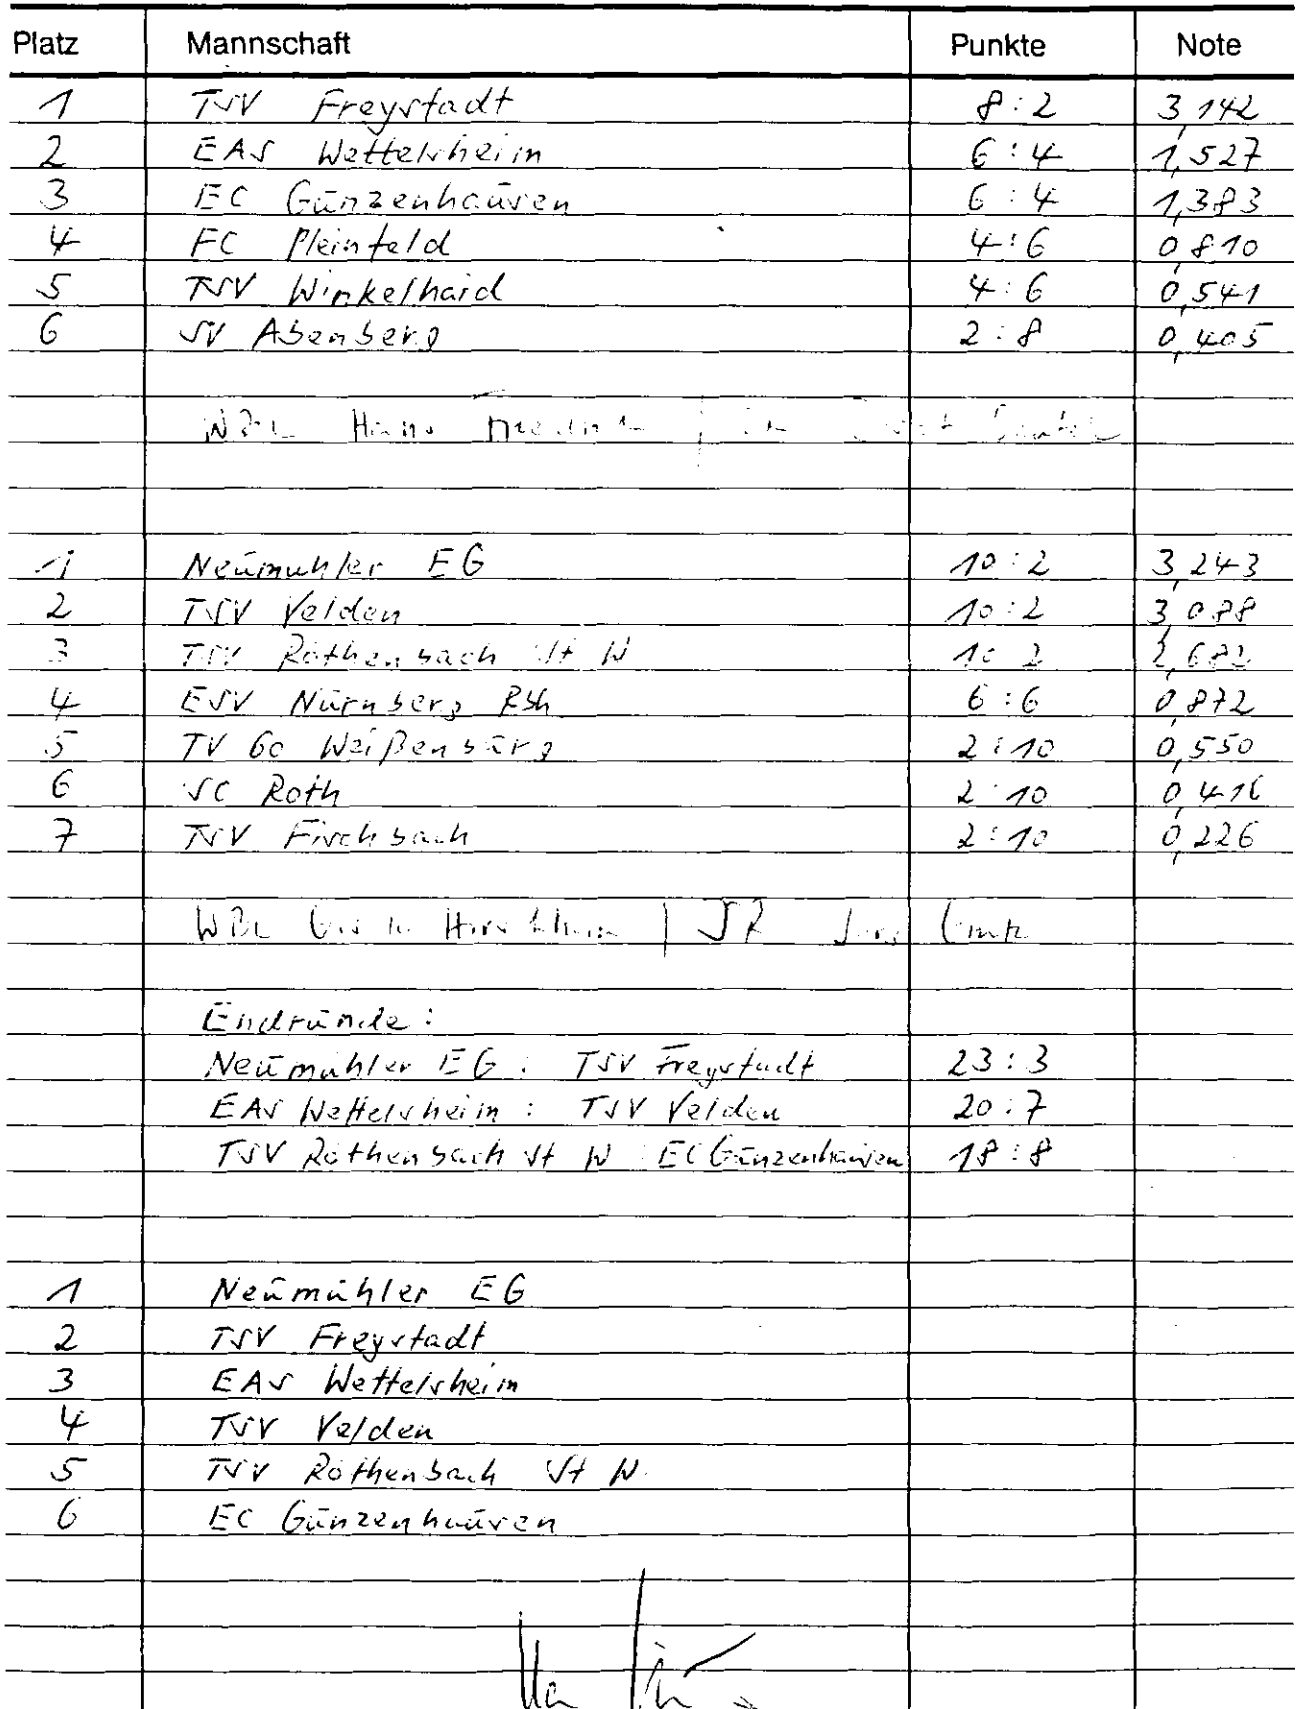 Platz Mannschaft Punkte Note
1 TSV Freystadt 8:2 3,142
2 EAS Wettelsheim 6:4 1,527
3 EC Gunzenhausen 6:4 1,383
4 FC Pleinfeld 4:6 0,810
5 TSV Winkelhaid 4:6 0,541
6 SV Abenberg 2:8 0,405
WBL Hans
1 Neumühler EG 10:2 3,243
2 TSV Velden 10:2 3,088
3 TSV Röthenbach St W 10:2 2,682
4 ESV Nürnberg Rbh 6:6 0,872
5 TV 60 Weißenburg 2:10 0,550
6 SC Roth 2:10 0,416
7 TSV Fischbach 2:10 0,226
WBL | SR
Endrunde:
Neumühler EG : TSV Freystadt 23:3
EAS Wettelsheim : TSV Velden 20:7
TSV Röthenbach St W : EC Gunzenhausen 18:8
1 Neumühler EG
2 TSV Freystadt
3 EAS Wettelsheim
4 TSV Velden
5 TSV Röthenbach St W
6 EC Gunzenhausen